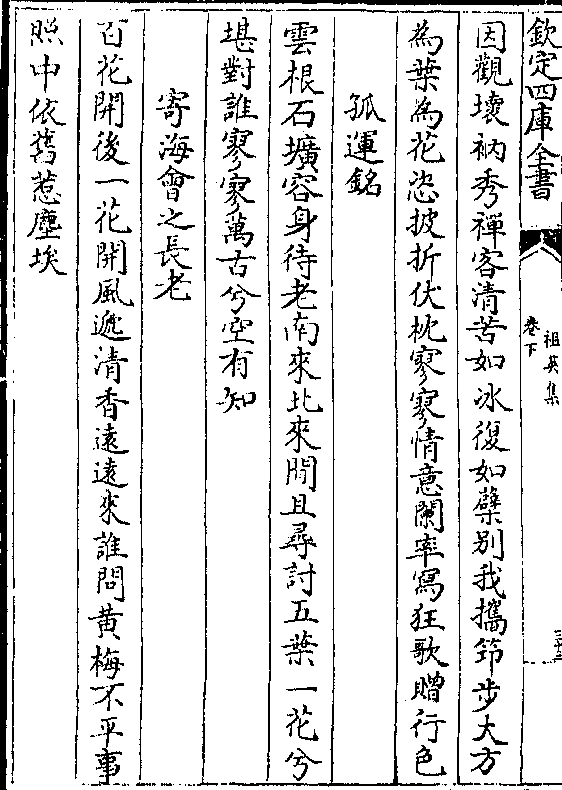 欽定四庫全書
祖英集
卷下
因觀壞衲秀禪客清苦如冰復如蘗別我攜筇步大方
為葉為花恣披折伏枕寥寥情意闌率寫狂歌贈行色
孤運銘
雲根石壙容身待老南來北來閒且尋討五葉一花兮
堪對誰寥寥萬古兮空有知
寄海會之長老
百花開後一花開風遞清香遠遠來誰問黃梅不平事
照中依舊惹塵埃